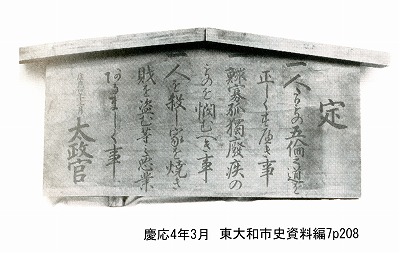 定
一人たるもの五倫の道を
正しくすへき事
一鰥寡孤獨廢疾の
ものを憫むへき事
一人を殺し家を焼き
財を盗む等の惡業
あるましく事
慶應四年三月
太政官
慶応4年3月 東大和市史資料編7p208